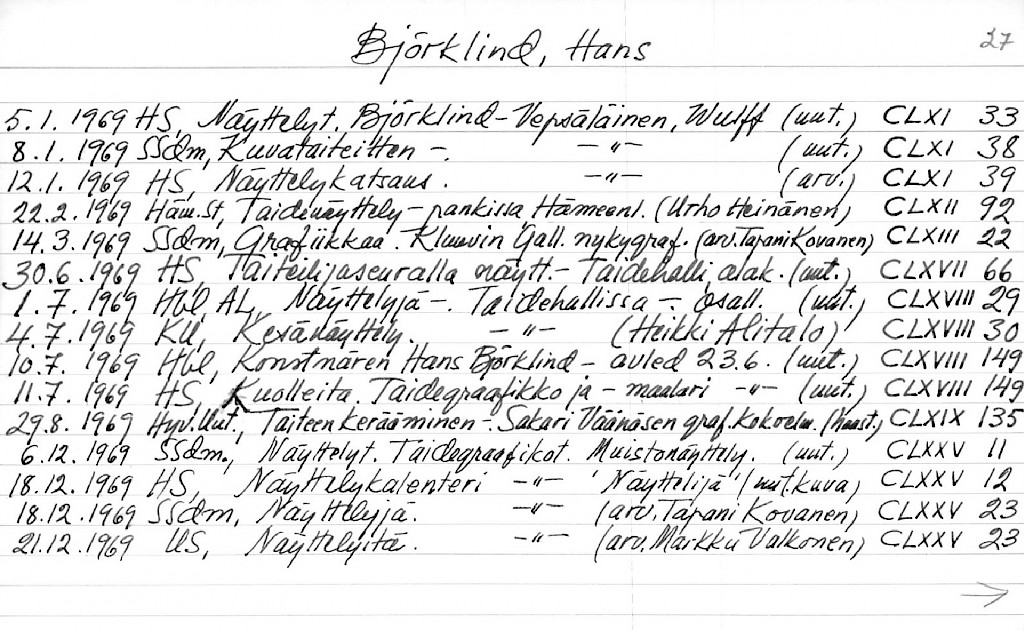 Björklind, Hans 27
5.1.1969 HS, Näyttelyt. Björklind-Vepsäläinen, Wulff (uut.) CLXI 33
8.1.1969 SSdm, Kuvataiteitten -. -"- (uut.) CLXI 38
12.1.1969 HS, Näyttelykatsaus. -"- (arv.) CLXI 39
22.2.1969 Häm.St, Taidenäyttely - pankissa, Hämeenl. (Urho Heinänen) CLXII 92
14.3.1969 SSdm, Grafiikkaa. Kluuvin Gall. nykygraf. (arv. Tapani Kovanen) CLXIII 22
30.6.1969 HS, Taiteilijaseuralla näytt.- Taidehalli, alak. (uut.) CLXVII 66
1.7.1969 Hbl, AL, Näyttelyjä -. Taidehallissa - osall. (uut.) CLXVIII 29
4.7.1969 KU, Kesänäyttely. -"- (Heikki Alitalo) CLXVIII 30
10.7.1969 Hbl, Konstnären Hans Björklind - avled 23.6. (uut.) CLXVIII 149
11.7.1969 HS, Kuolleita. Taidegraafikko ja - maalari -"- (uut.) CLXVIII 149
29.8.1969 Hyv.Uut., Taiteen kerääminen -. Sakari Väänäsen graf. kokoelm. CLXIX 135
6.12.1969 SSdm., Näyttelyt. Taidegraafikot. Muistonäyttely. (uut.) CLXXV 11
18.12.1969 HS, Näyttelykalenteri -"- 'Näyttelijä' (uut. kuva) CLXXV 12
18.12.1969 SSdm, Näyttelyjä. -"- (arv. Tapani Kovanen) CLXXV 23
21.12.1969 US, Näyttelyitä. -"- (arv. Markku Valkonen) CLXXV 23
→